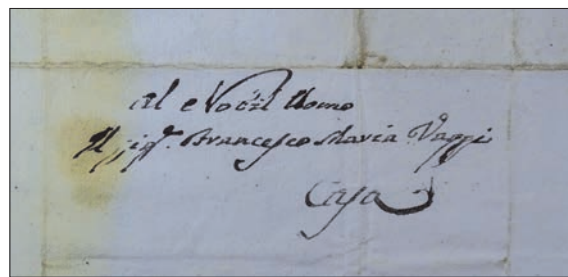 Al Nobil Uomo
Il Sigr. Francesco Maria Vappi
Casa